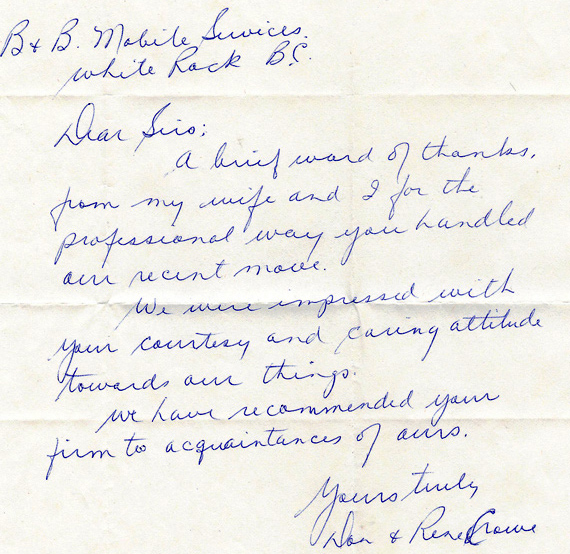 B & B. Mobile Services.
White Rock B.C.
Dear Sirs:
A brief word of thanks,
from my wife and I for the
professional way you handled
our recent move.
We were impressed with
your courtesy and caring attitude
towards our things.
We have recommended your
firm to acquaintances of ours.
Yours truly
Don & Rene Crowe